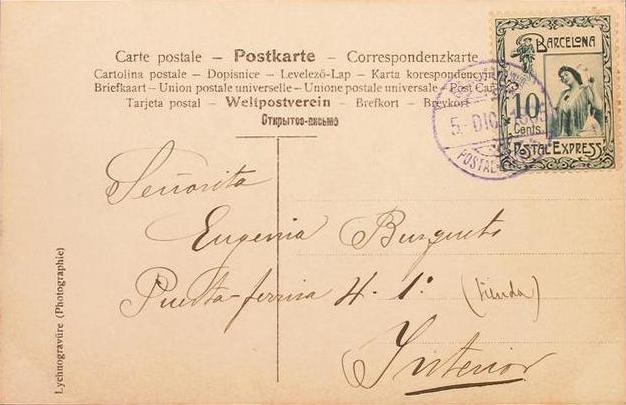 Carte postale – Postkarte – Correspondenzkarte
Cartolina postale – Dopisnice – Levelező-Lap – Karta korespondencyjna
Briefkaart – Union postale universelle – Unione postale universale – Post Card
Tarjeta postal – Weltpostverein – Brefkort – Brevkort
Открытое-письмо
BARCELONA
10
Cents.
POSTAL EXPRESS
5 - DIC.
POSTAL
Señorita
Eugenia Burgueto
Puerta-ferrisa 4-1º (tienda)
Interior
Lychnogravüre (Photographie)